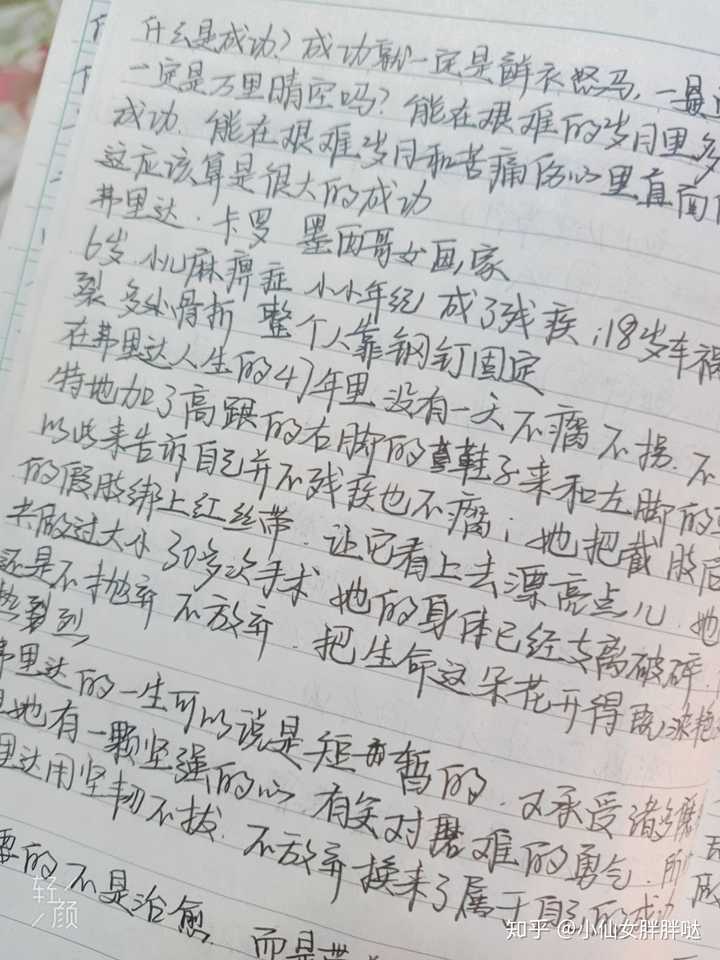 什么是成功？成功就一定是鲜衣怒马，一
一定是万里晴空吗？能在艰难的岁月里多
成功．能在艰难岁月和苦痛伤心里直面
这应该算是很大的成功
弗里达．卡罗 墨西哥女画家
6岁．小儿麻痹症 小小年纪 成了残疾；18岁车祸
裂 多处骨折 整个人靠钢钉固定
在弗里达人生的47年里．没有一天不瘸不拐．不
特地加了高跟的右脚的鞋子来和左脚的
以此来告诉自己并不残疾也不瘸；她把截肢后
的假肢绑上红丝带．让它看上去漂亮点儿．她
共做过大小30多次手术 她的身体已经支离破碎．
还是不抛弃 不放弃．把生命这朵花开得
热烈
弗里达的一生可以说是短暂的．又承受诸多
她有一颗坚强的心．有笑对磨难的勇气．所
里达用坚韧不拔．不放弃换来了属于自己的成功
要的不是治愈．而是带
轻颜
知乎 @小仙女胖胖哒